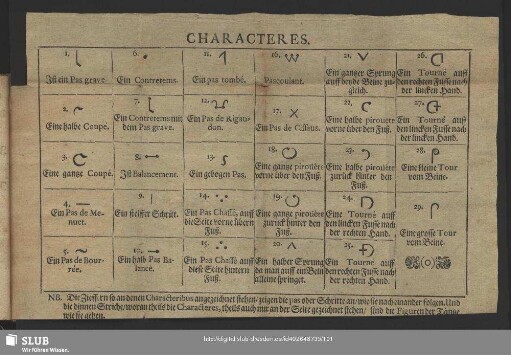 CHARACTERES.
1.
Ist ein Pas grave.
6.
Ein Contretems.
11.
Ein pas tombé.
16.
Pas coulant.
21.
Ein gantzer Sprung
auff beyde Beine zu-
gleich.
26.
Ein Tourné auff
den rechten Fusse nach
der lincken Hand.
2.
Eine halbe Coupé.
7.
Ein Contretems mit
dem Pas grave.
12.
Ein Pas de Rigau-
dun.
17.
Ein Pas de
22.
Eine halbe pirouëte
vorne über den Fuß.
27.
Ein Tourné auff
den lincken Fusse nach
der lincken Hand.
3.
Eine gantze Coupé.
8.
Ist Balancement.
13.
Ein gebogen Pas.
18.
Eine gantze pirouëte
vorne über den Fuß.
23.
Eine halbe pirouëte
zurück hinter den
Fuß.
28.
Eine kleine Tour
vom Beine.
4.
Ein Pas de Me-
nuet.
9.
Ein steiffer Schrit.
14.
Ein Pas Chassé, auff
die Seite vorne übern
Fuß.
19.
Eine gantze pirouëte
zurück hinter den
Fuß.
24.
Ein Tourné auff
den lincken Fusse nach
der rechten Hand.
29.
Eine grosse Tour
vom Beine.
5.
Ein Pas de Bour-
rée.
10.
Ein halb Pas Ba-
lancé.
15.
Ein Pas Chassé auff
diese Seite hintern
Fuß.
20.
Ein halber Sprung
da man auff ein Bein
alleine springet.
25.
Ein Tourné auff
den rechten Fusse nach
der rechten Hand.
NB. Die Ziffern so an denen Characteribus angezeichnet stehen/ zeigen die pas oder Schritte an/ wie sie nach einander folgen. Und
die dinnen Striche/ woran theils die Characteres, theils auch nur an der Seite gezeichnet stehen/ sind die Figuren der Täntze
wie sie gehen.
SLUB
Wir führen Wissen.